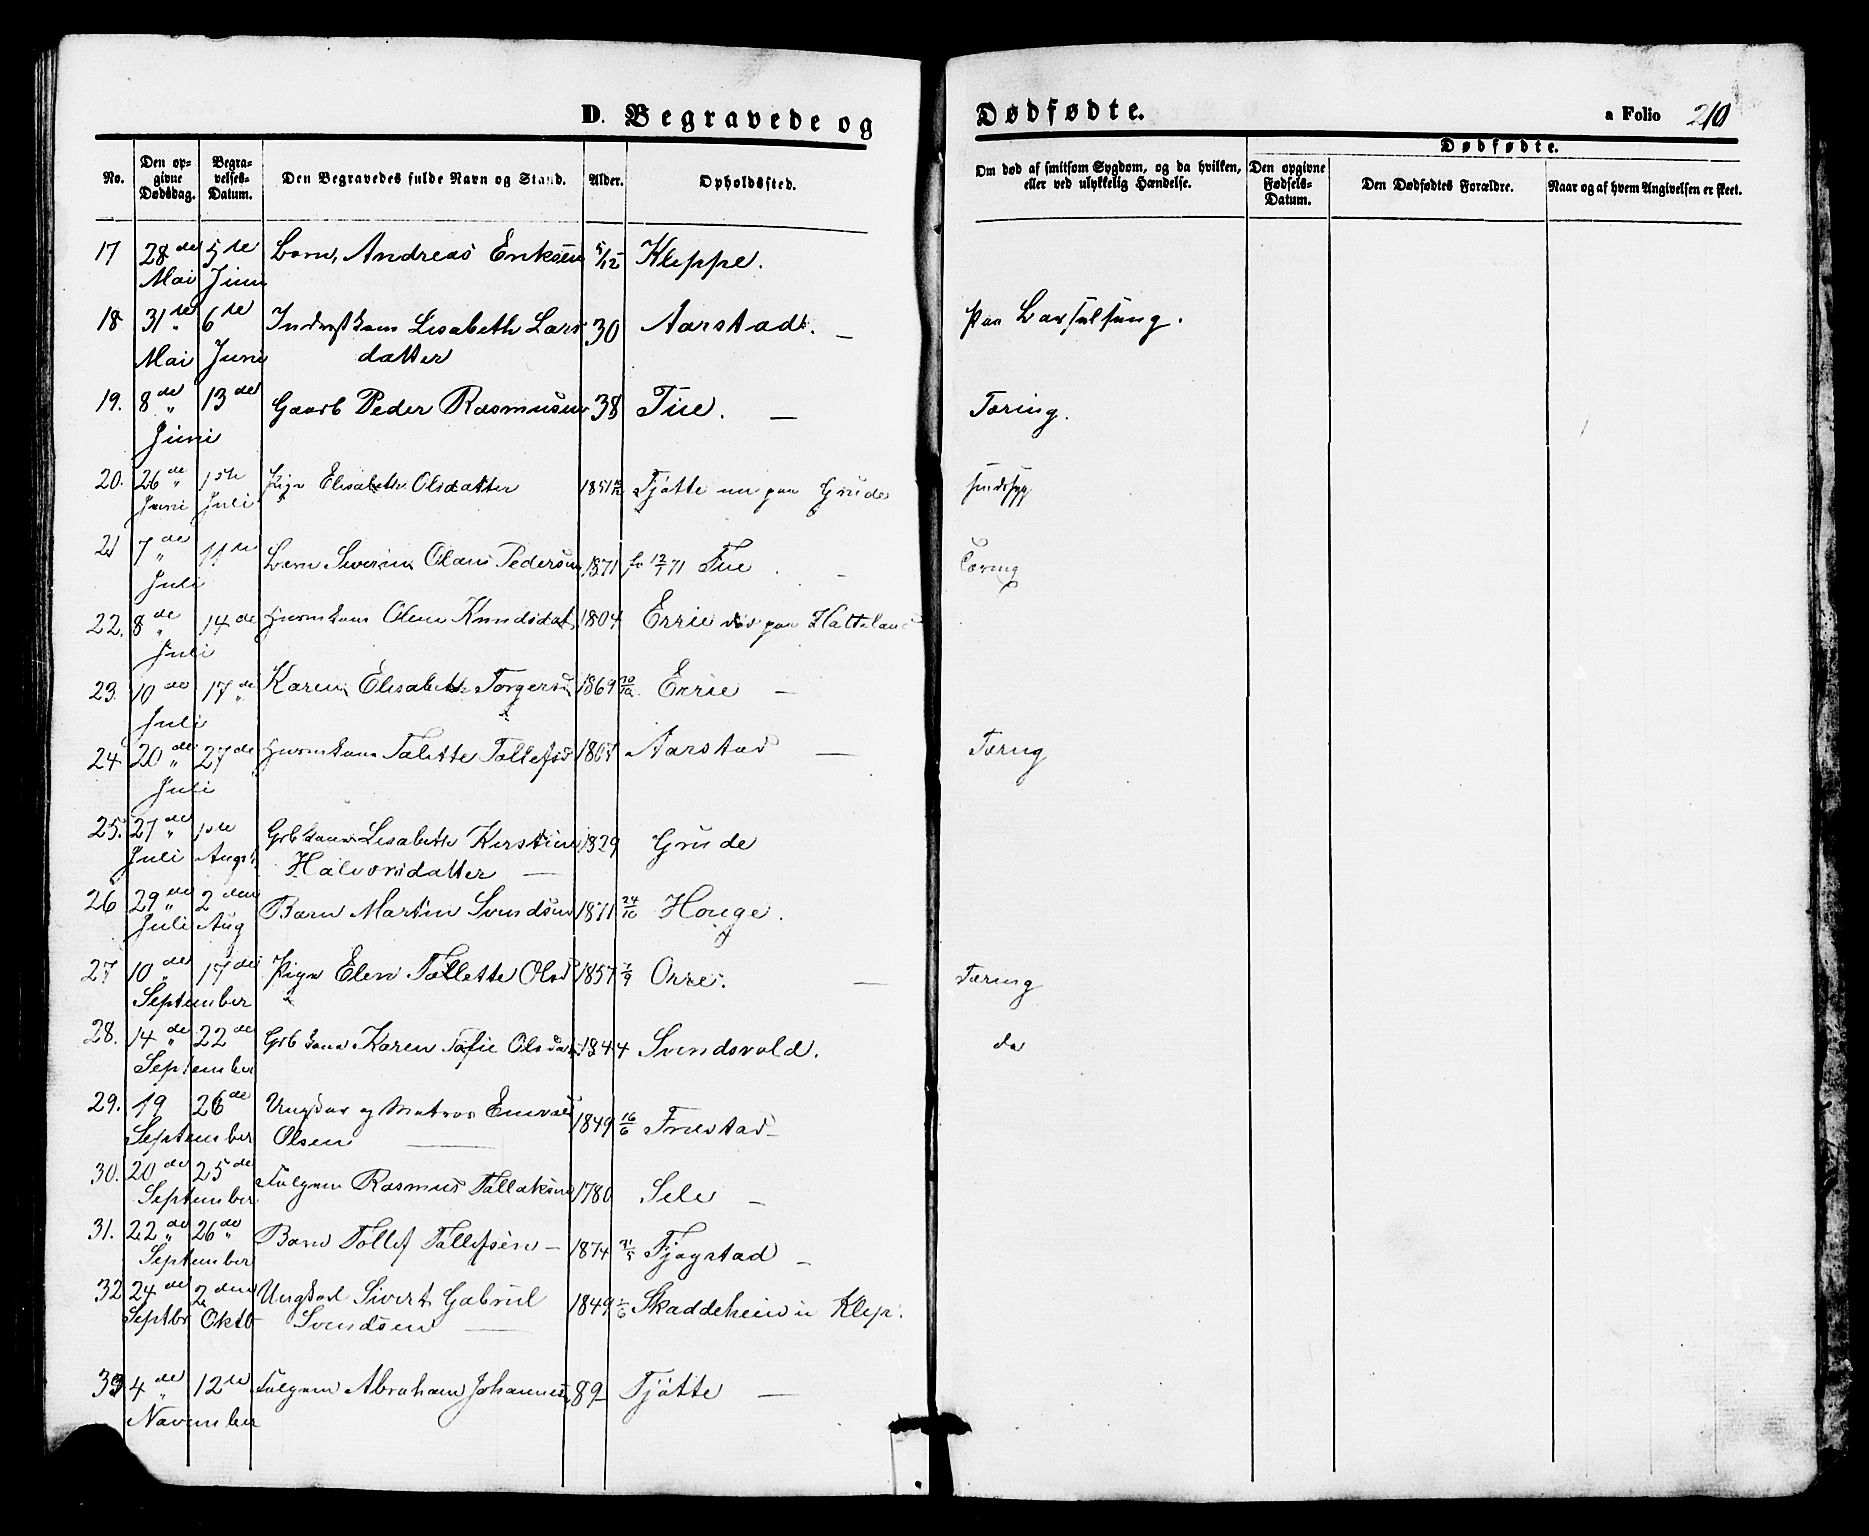 D. Begravede og Dødfødte. a Folio 210
No. Den opgivne Dødsdag. Begravelses-Datum. Den Begravedes fulde Navn og Stand. Alder. Opholdssted. Om død af smitsom Sygdom, og da hvilken, eller ved ulykkelig Hændelse. Dødfødte. Den opgivne Fødsels-Datum. Den Dødfødtes Forældre. Naar og af hvem Angivelsen er skeet.
17 28de 5te Barn, Andreas Eriksen 5/12 Kleppe.
Mai Juni
18 31te 6te Lisabeth Lars 30 Aarstad. — paa Barselseng.
Mai Juni datter
19. 8de 13de Gaarb Peder Rasmusen 38 Tue. — Tæring.
" Juni
20. 26de 1ste Pige Elisabeth Olsdatter 1851 Tjøtte nu paa Grude sindssyg
Juni Juli
21 7de 11te Barn Olaus Pedersen 1871 12/1 71 Tue . — Tæring
" Juli
22. 8de 14de Huusm kone Olene Knudsdat 1804 Errie død paa Hatteland
" Juli
23. 10de 17de Karen Elisabeth Torgersd 1869 Errie —
Juli
24 20de 27de Huusm kone Talette Tollefsd Aarstad — Tæring
" Juli
25. 27de 1ste Grb kone Lisabeth Kirstine 1829 Grude
Juli Augst Halvorsdatter —
26 29de 2den Barn Martin Svendsen 1871 24/10 Houge.
Juli Aug
27 10de 17de Pige Elen Tallette Olsd 1857 7/9 Orre. — Tæring
September
28. 14de 22de Grb kone Karen Tofie Olsda 1844 Svendsvold. do
September
29. 19 26de Ungkar og Matros 1849 16/6 Friestad —
September Olsen —
30. 20de 25de Fulgem Rasmus Tollaksen 1780 Sele —
September
31. 22de 26de Barn Tollef Tollefsen — 1874 Fjogstad —
September
32 24de 2den Ungkarl Sivert Gabriel 1849 Skaddeheien i Klep.
Septbr Oktb Svendsen —
33 4de 12te Fulgem Abraham Johannes 89 Tjøtte —
" November